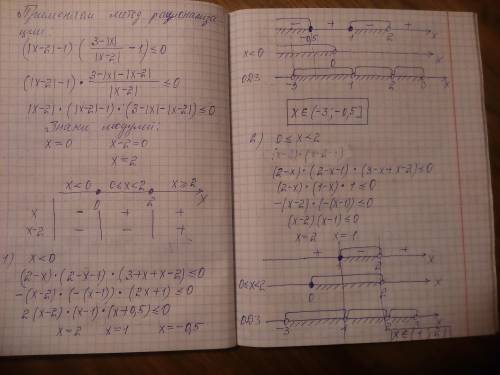 Применим метод рационализа
ции:
(|x-2|-1) (3-|x| / |x-2| -1) ≤0
(|x-2|-1) · 3-|x|-|x-2| / |x-2| ≤0
|x-2| · (|x-2|-1) · (3-|x|-|x-2|) ≤0
Знаки модулей:
x=0 x-2=0
x=2
x<0 0≤x<2 x≥2 x
0 2
x - + +
x-2 - - +
1) x<0
(2-x)·(2-x-1)·(3+x+x-2)≤0
-(x-2)·(-(x-1))·(2x+1)≤0
2(x-2)·(x-1)·(x+0,5)≤0
x=2 x=1 x=-0,5
- + - + x
-0,5 1 2
x<0 x
0
ОДЗ x
-3 1 2 3
x∈(-3;-0,5]
2) 0≤x<2
(2-x)·(2-x-1)·(3-x+x-2)≤0
(2-x)·(1-x)·1≤0
-(x-2)·(-(x-1))≤0
(x-2)(x-1)≤0
x=2 x=1
+ - + x
1 2
0≤x<2 x
0 2
ОДЗ x
-3 1 2 3
x∈(1;2)